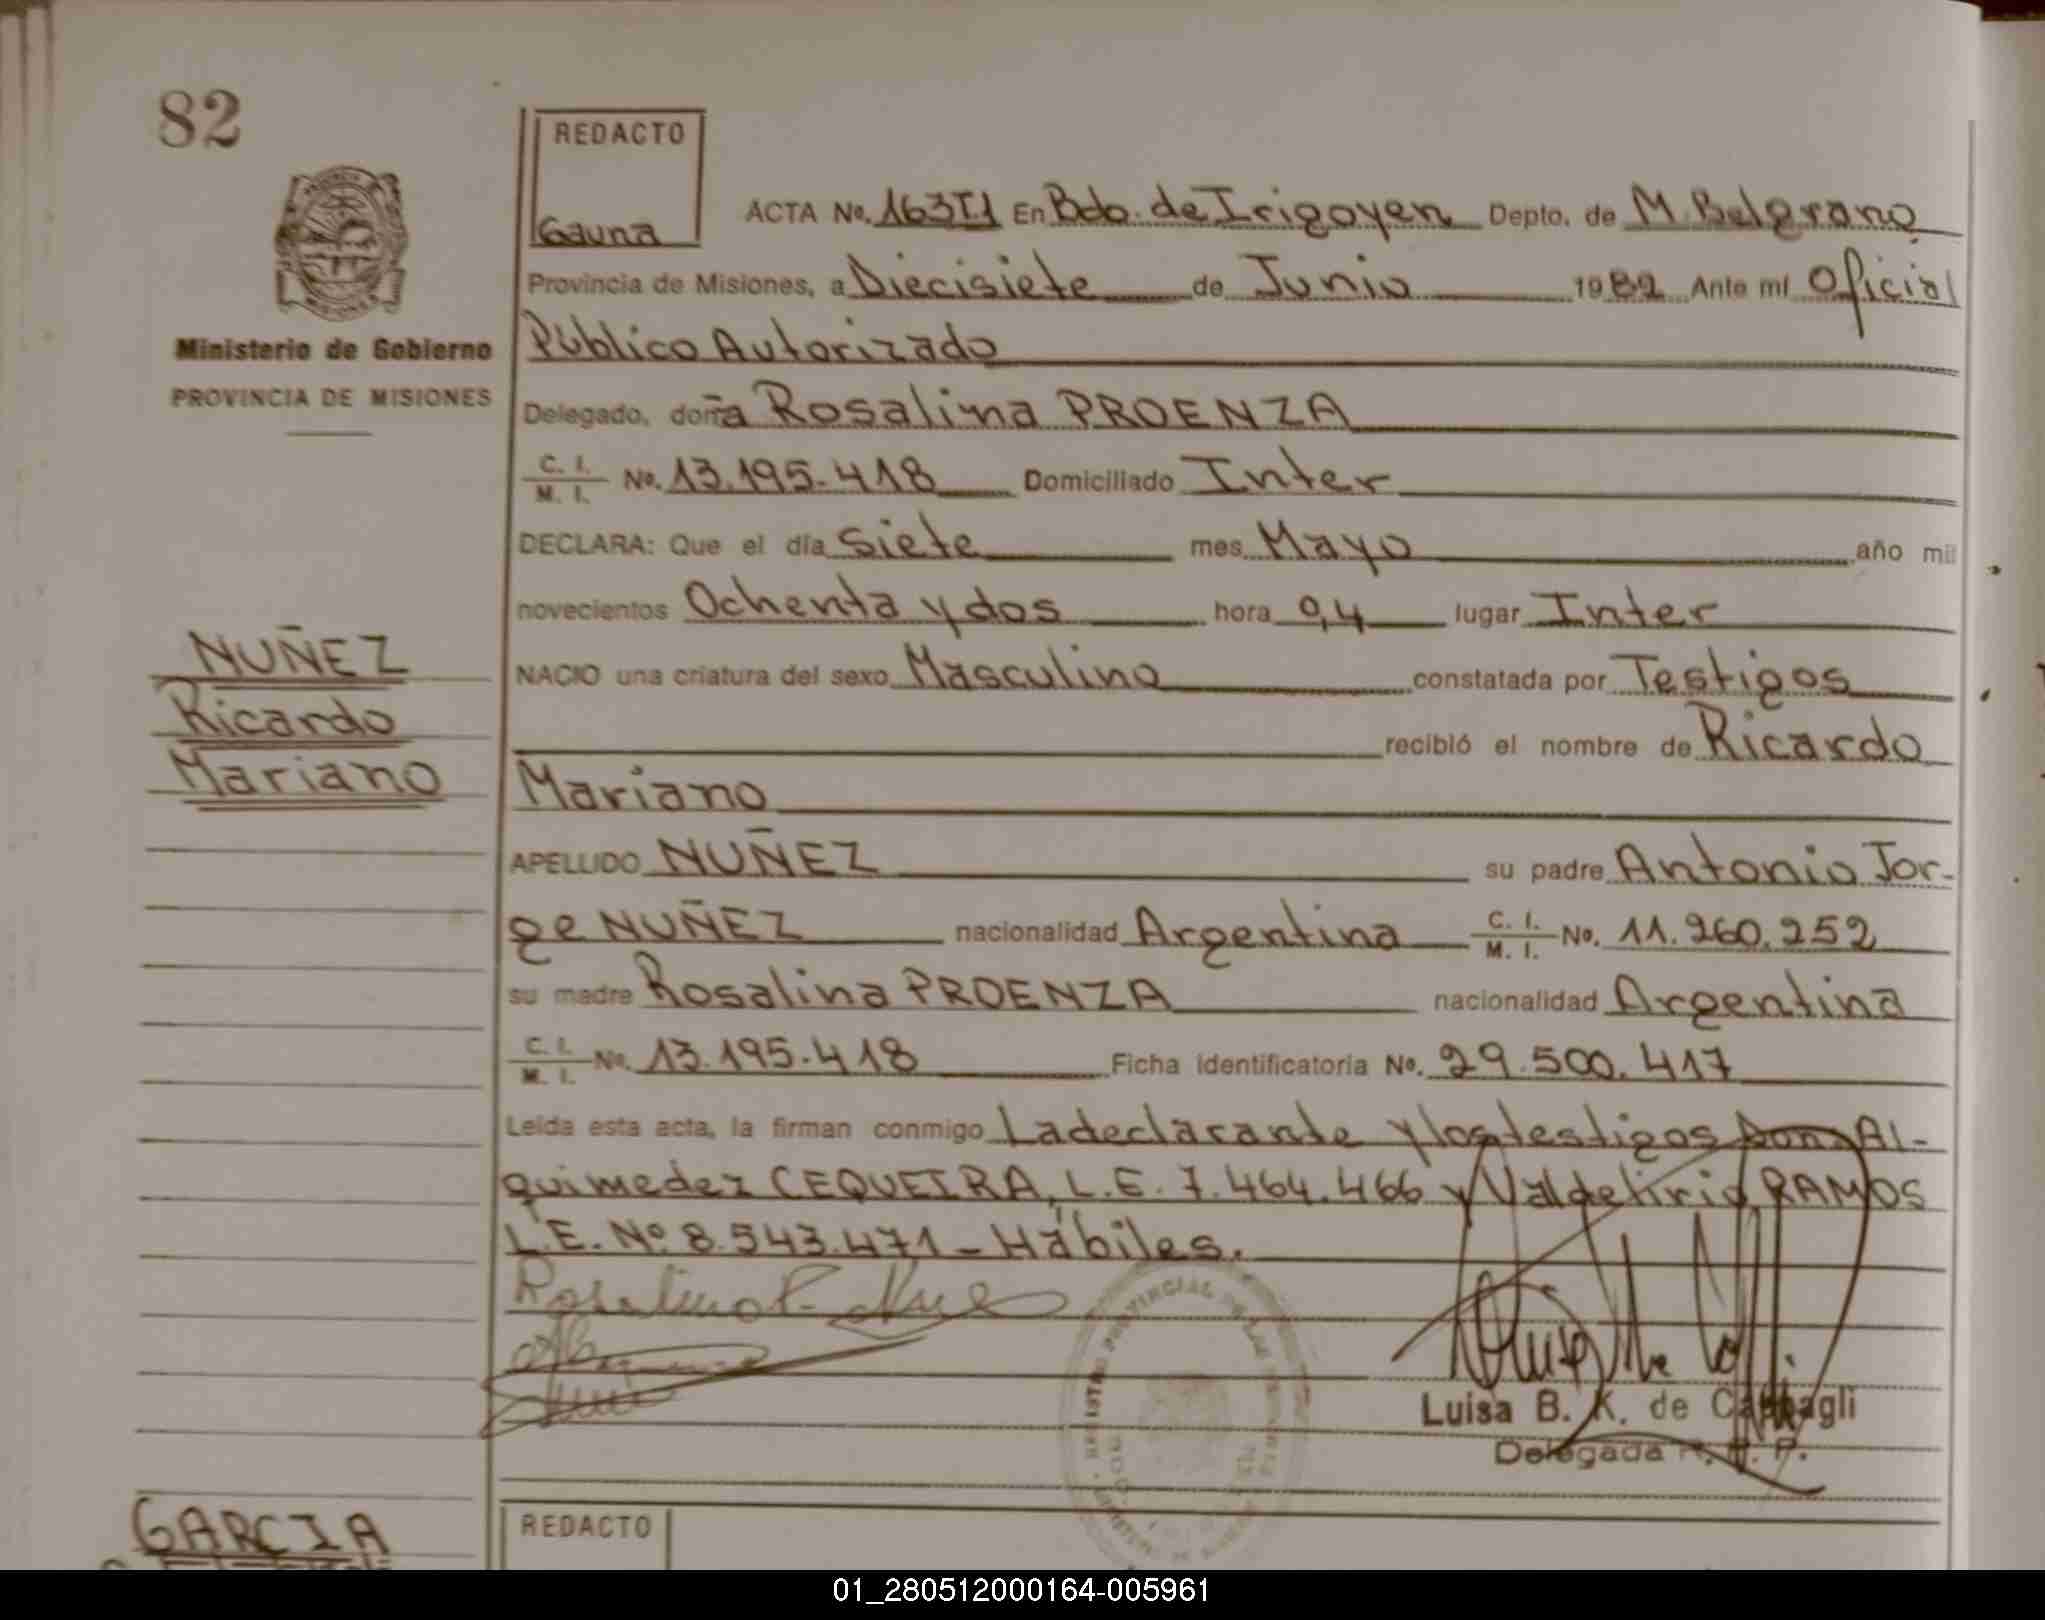 82
REDACTO
Gauna
ACTA No. 163T1 En Bdo. de Irigoyen Depto. de M. Belgrano
Provincia de Misiones, a Diecisiete de Junio 1982 Ante mí Oficial
Ministerio de Gobierno
Público Autorizado
PROVINCIA DE MISIONES
Delegado, doña Rosalina PROENZA
C. I. / M. I. No. 13.195.418 Domiciliado Inter
DECLARA: Que el día Siete mes Mayo año mil
novecientos Ochenta y dos hora 0,4 lugar Inter
NUÑEZ
Ricardo
Mariano
NACIO una criatura del sexo Masculino constatada por Testigos
recibió el nombre de Ricardo
Mariano
APELLIDO NUÑEZ su padre Antonio Jor-
ge NUÑEZ nacionalidad Argentina C. I. / M. I. No. 11.260.252
su madre Rosalina PROENZA nacionalidad Argentina
C. I. / M. I. No. 13.195.418 Ficha identificatoria No. 29.500.417
Leida esta acta, la firman conmigo La declarante y los testigos Don Al-
quimedez CEQUEIRA, L.E. 7.464.466 y Valdelirio RAMOS
L.E. Nº 8.543.471 - Hábiles.
Rosalina P. de Nuñez
Luisa B. K. de
Delegada R. P.
GARCIA
REDACTO
01_280512000164-005961